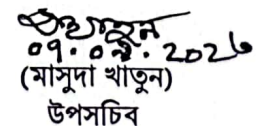 ০৭.০৫.২০২৬
(মাসুদা খাতুন)
উপসচিব